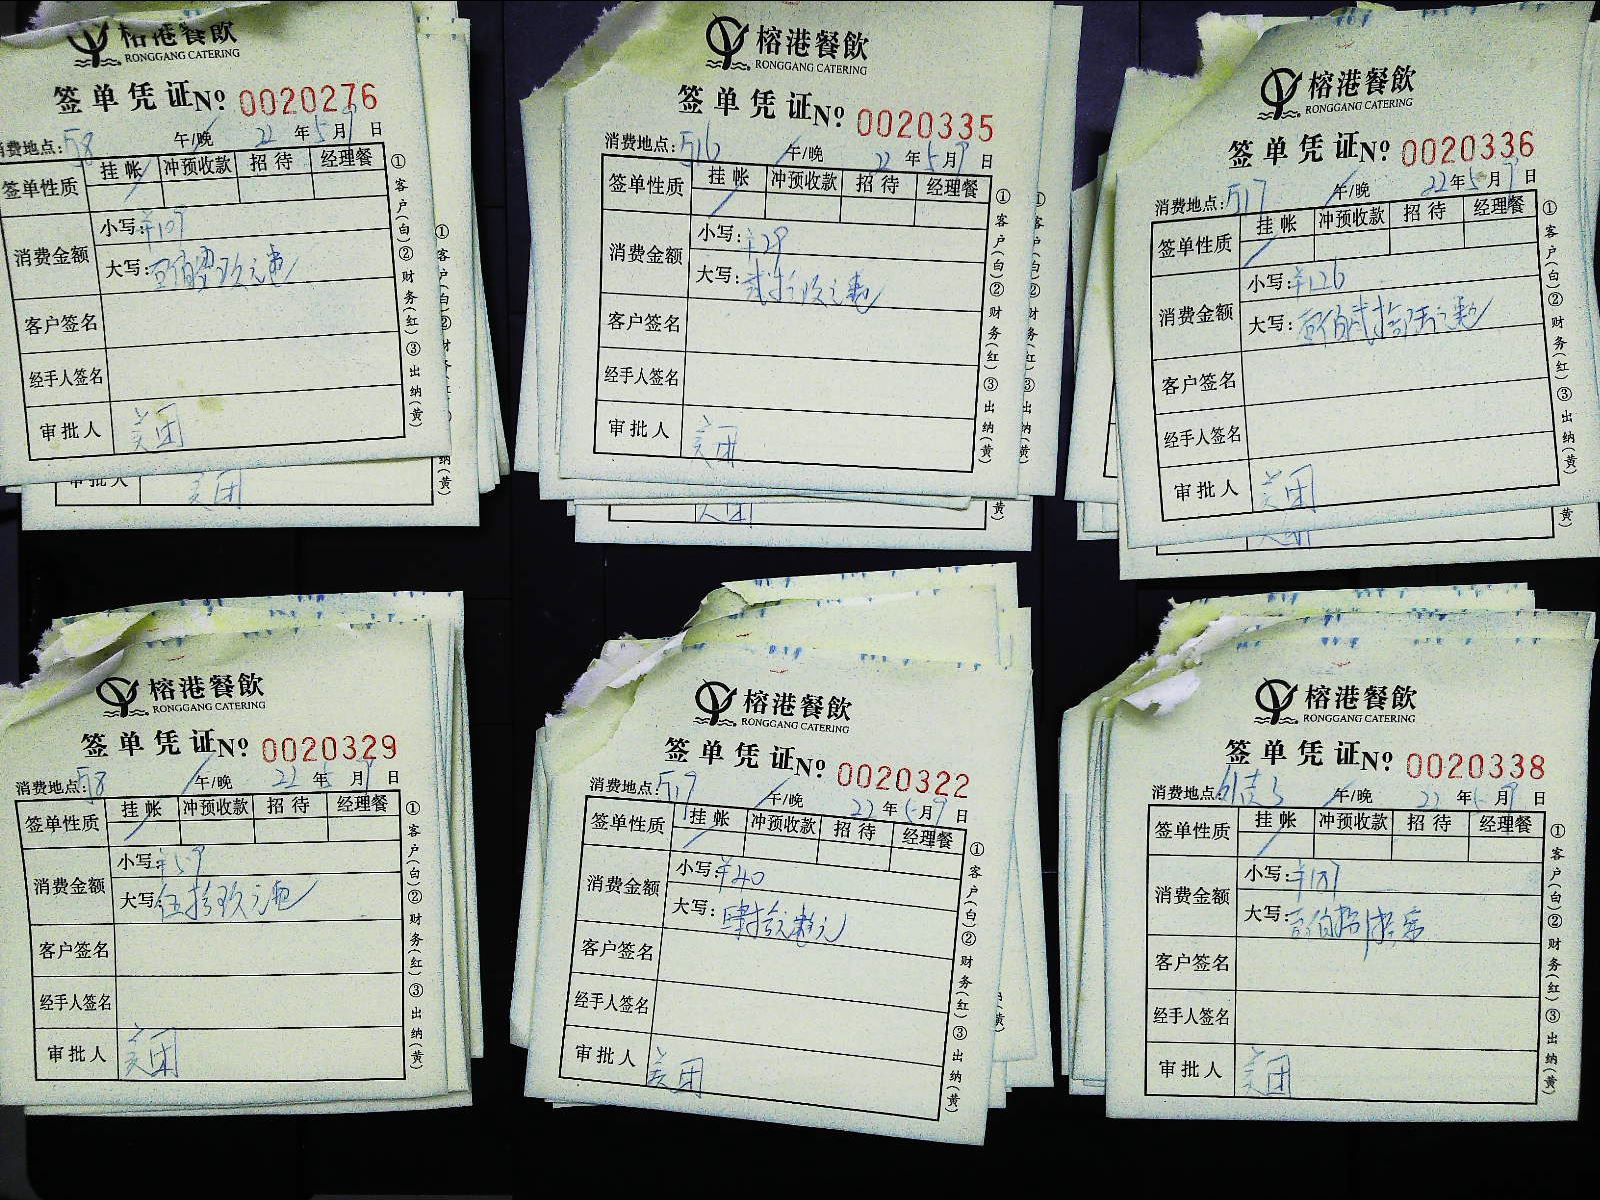 榕港餐飲
RONGGANG CATERING
签单凭证 Nº 0020276
消费地点: 58 午/晚 22年5月9日
签单性质 挂帐 冲预收款 招待 经理餐
消费金额 小写: ¥109
大写: 壹佰零玖元整
客户签名
经手人签名
审批人 关闭
①客户(白)②财务(红)③出纳(黄)
审批人 关闭
榕港餐飲
RONGGANG CATERING
签单凭证 Nº 0020335
消费地点: 516 午/晚 22年5月9日
签单性质 挂帐 冲预收款 招待 经理餐
消费金额 小写: ¥29
大写: 贰拾玖元整
客户签名
经手人签名
审批人 关闭
①客户(白)②财务(红)③出纳(黄)
榕港餐飲
RONGGANG CATERING
签单凭证 Nº 0020336
消费地点: 517 午/晚 22年5月9日
签单性质 挂帐 冲预收款 招待 经理餐
消费金额 小写: ¥126
大写: 壹佰贰拾陆元整
客户签名
经手人签名
审批人 关闭
①客户(白)②财务(红)③出纳(黄)
榕港餐飲
RONGGANG CATERING
签单凭证 Nº 0020329
消费地点: 58 午/晚 22年5月9日
签单性质 挂帐 冲预收款 招待 经理餐
消费金额 小写: ¥59
大写: 伍拾玖元整
客户签名
经手人签名
审批人 关闭
①客户(白)②财务(红)③出纳(黄)
榕港餐飲
RONGGANG CATERING
签单凭证 Nº 0020322
消费地点: 517 午/晚 22年5月9日
签单性质 挂帐 冲预收款 招待 经理餐
消费金额 小写: ¥40
大写: 肆拾元整元
客户签名
经手人签名
审批人 关闭
①客户(白)②财务(红)③出纳(黄)
榕港餐飲
RONGGANG CATERING
签单凭证 Nº 0020338
消费地点: 午/晚 22年5月9日
签单性质 挂帐 冲预收款 招待 经理餐
消费金额 小写:
大写: 壹佰
客户签名
经手人签名
审批人 关闭
①客户(白)②财务(红)③出纳(黄)